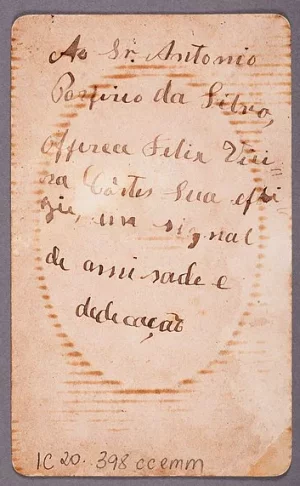 Ao Sr. Antonio
Porfirio da Silva,
Offerece Felix Viei
ra Côrtes Sua effi
gie, um signal
de amisade e
dedicação
IC 20. 398 ccemm